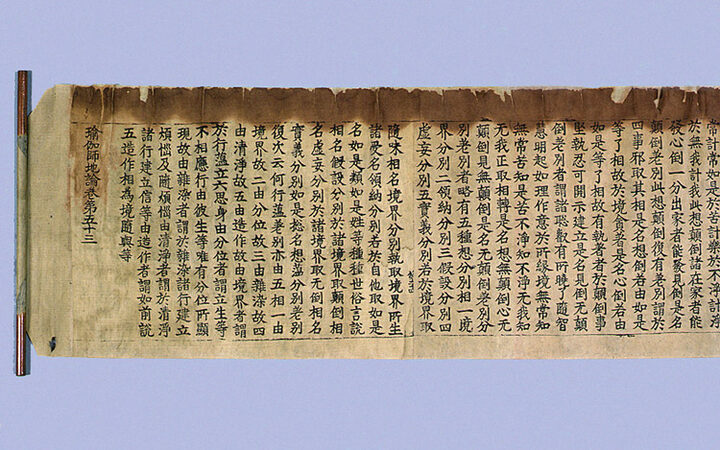 常計常如是於苦計樂於不淨計淨
於無我計我此想顛倒諸在家者能
發心倒一分出家者能發見倒是名
顛倒差別此想顛倒復有差別謂於
四事邪取其相是名想倒若由如是
等了相故於境貪著是名心倒若由
如是等了相故有執著者於顛倒事
堅執忍可開示建立是名見倒無顛
倒差別者謂諸聰叡有所曉了隨智
慧明起如理作意於所緣境無常知
無常苦知是苦不淨知不淨無我知
无我正取相轉是名想無顛倒心无
顛倒見無顛倒是名无顛倒差別分
別差別者略有五種想分別相一境
界分別二領納分別三假設分別四
虛妄分別五實義分別若於境界取
隨味相名境界分別執取境界所生
諸受名領納分別若於自他取如是
名如是類如是姓等種種世俗言說
相名假設分別於諸境界取顛倒相
名虛妄分別於諸境界取無倒相名
實義分別如是總名想蘊分別差別
復次云何行蘊差別亦由五相一由
境界故二由分位故三由雜染故四
由清淨故五由造作故由境界者謂
於行蘊立六思身由分位者謂立生等
不相應行由彼生等唯有分位所顯
現故由雜染者謂於雜染諸行建立
煩惱及隨煩惱由清淨者謂於清淨
諸行建立信等由造作者謂如前說
五造作相為境隨與等
瑜伽師地論卷第五十三